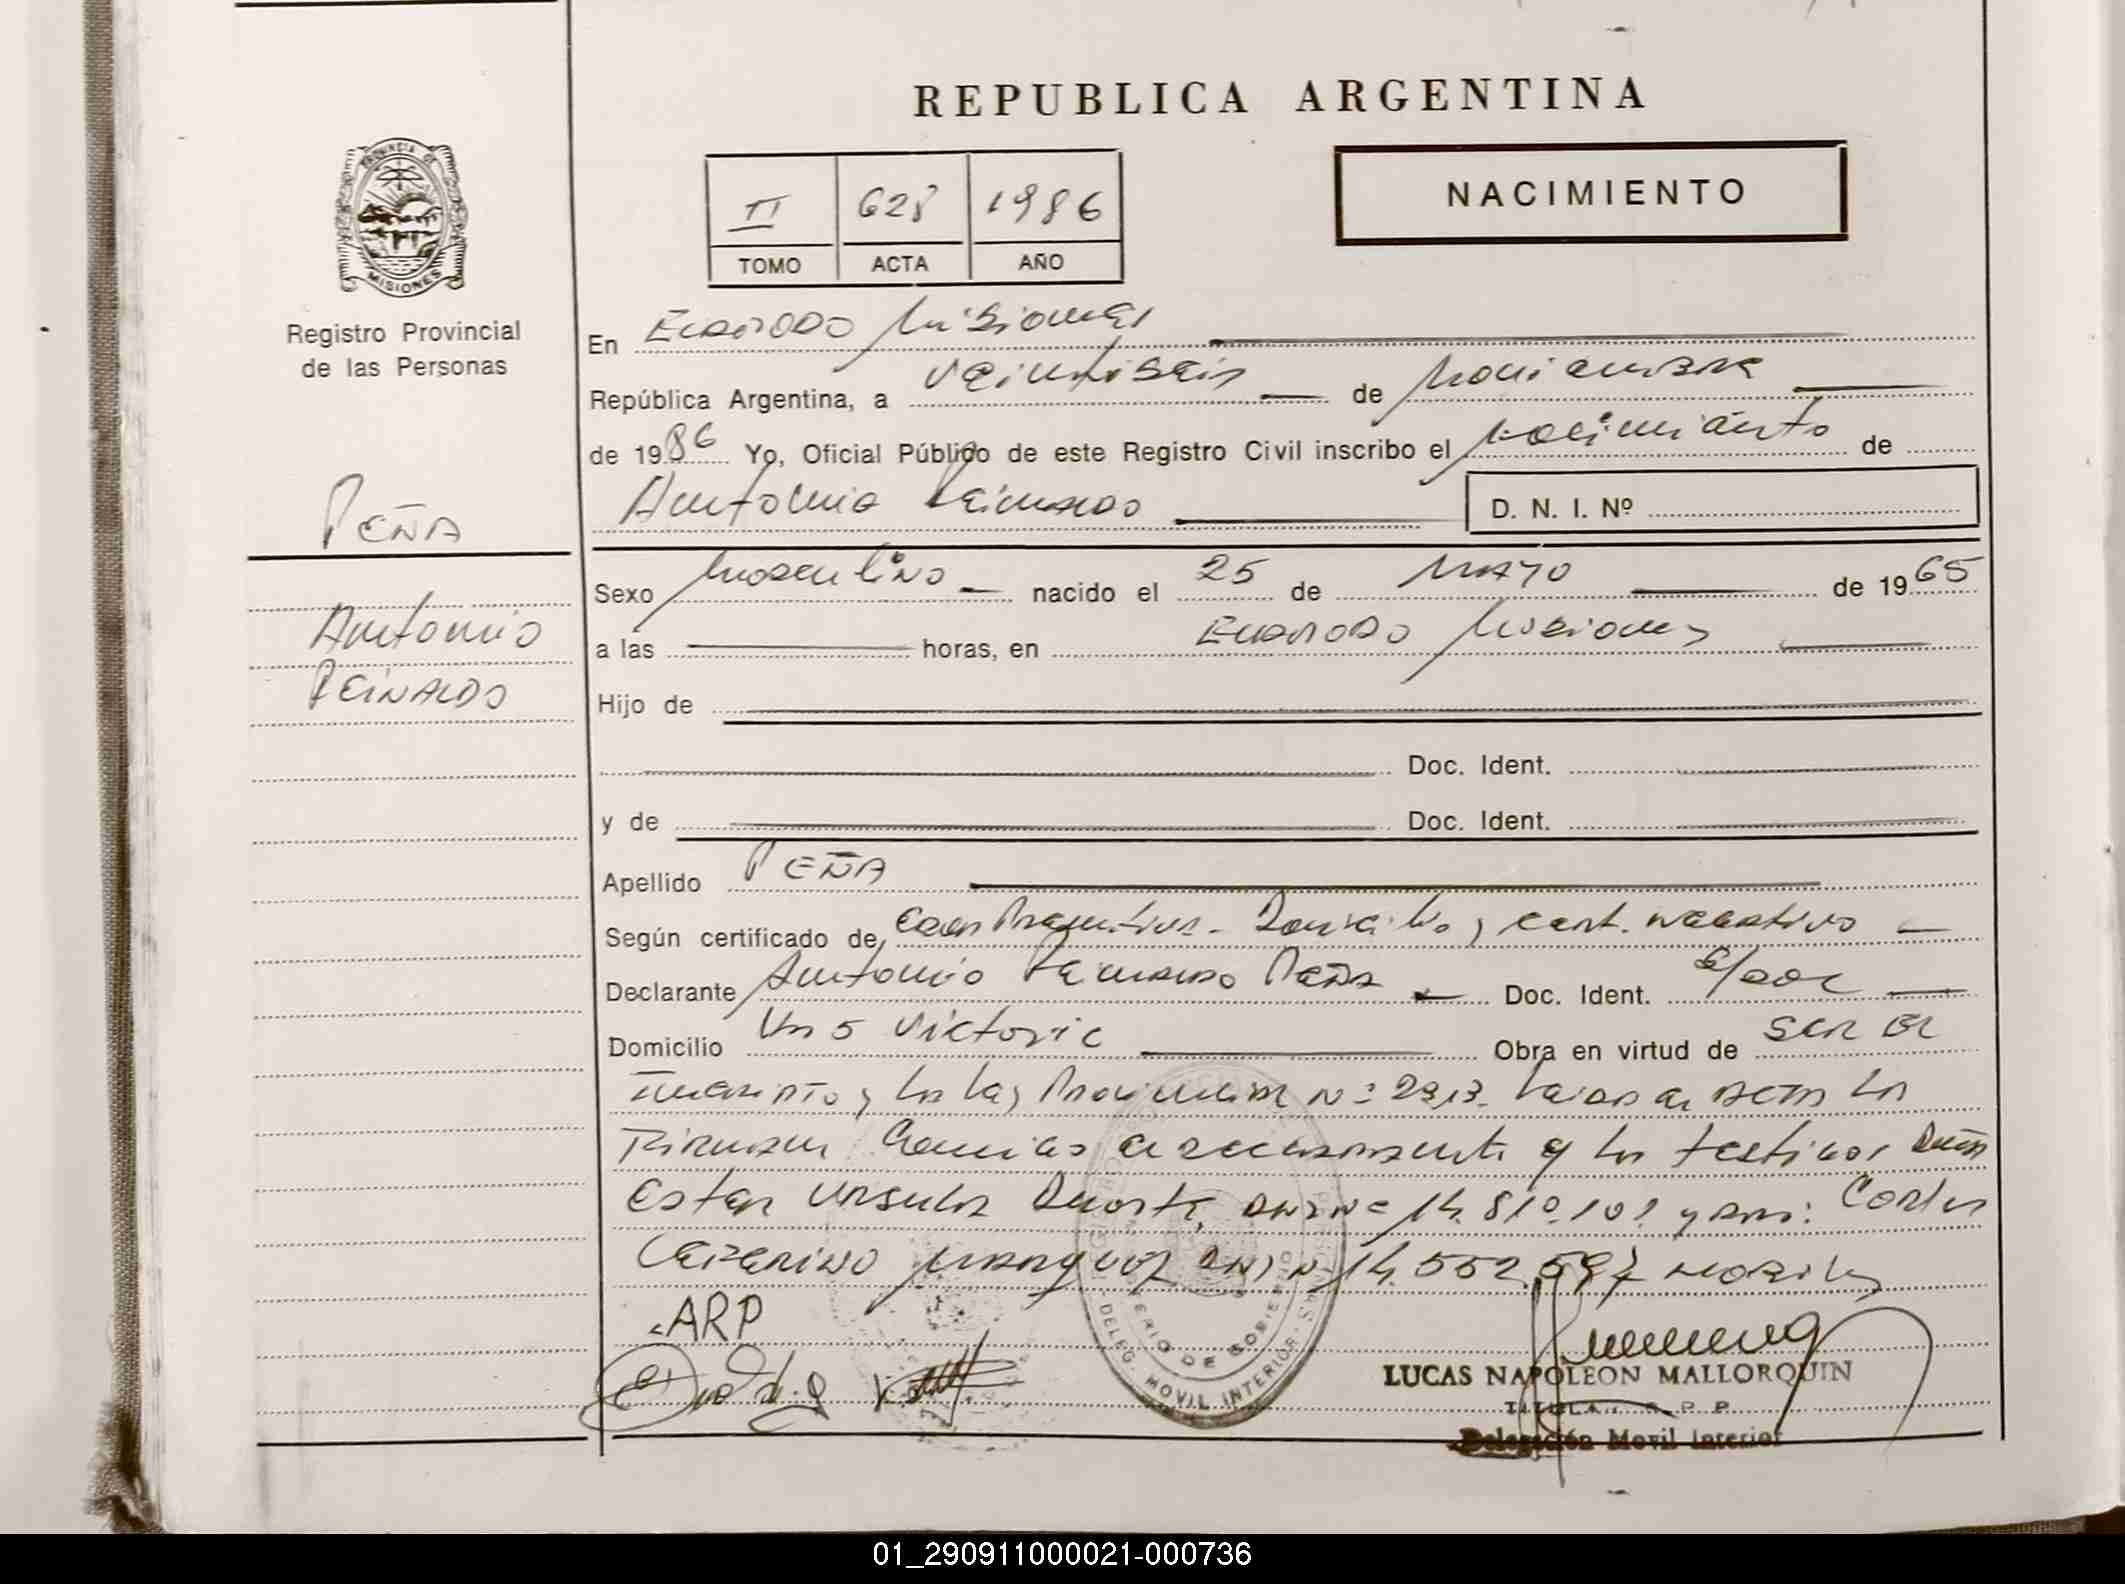 REPUBLICA ARGENTINA
PROVINCIA DE MISIONES
II 628 1986
TOMO ACTA AÑO
NACIMIENTO
Registro Provincial
de las Personas
PEÑA
Antonio
REINALDO
En ELDORADO Misiones
República Argentina, a Veintiseis de Noviembre
de 1986 Yo, Oficial Público de este Registro Civil inscribo el Nacimiento de
Antonio Reinaldo D. N. I. Nº
Sexo Masculino nacido el 25 de MAYO de 1965
a las horas, en ELDORADO Misiones
Hijo de
Doc. Ident.
y de Doc. Ident.
Apellido PEÑA
Según certificado de Domicilio y cert. negativo
Declarante Antonio Reinaldo Peña Doc. Ident. s/doc
Domicilio Km 5 Victoria Obra en virtud de SER EL
INSCRIPTO y la ley Provincial Nº 2913. Leida el ACTA la
FIRMAN conmigo el declarante y los testigos Doña
Ester Ursula Duarte, DNI Nº 14.810.101 y Don: Carlos
Ceferino Marquez DNI N 14.552.597
ARP
MINISTERIO DE GOBIERNO
DELEG. MOVIL INTERIOR
LUCAS NAPOLEON MALLORQUIN
TITULAR R. P. P.
Delegación Movil Interior
01_290911000021-000736